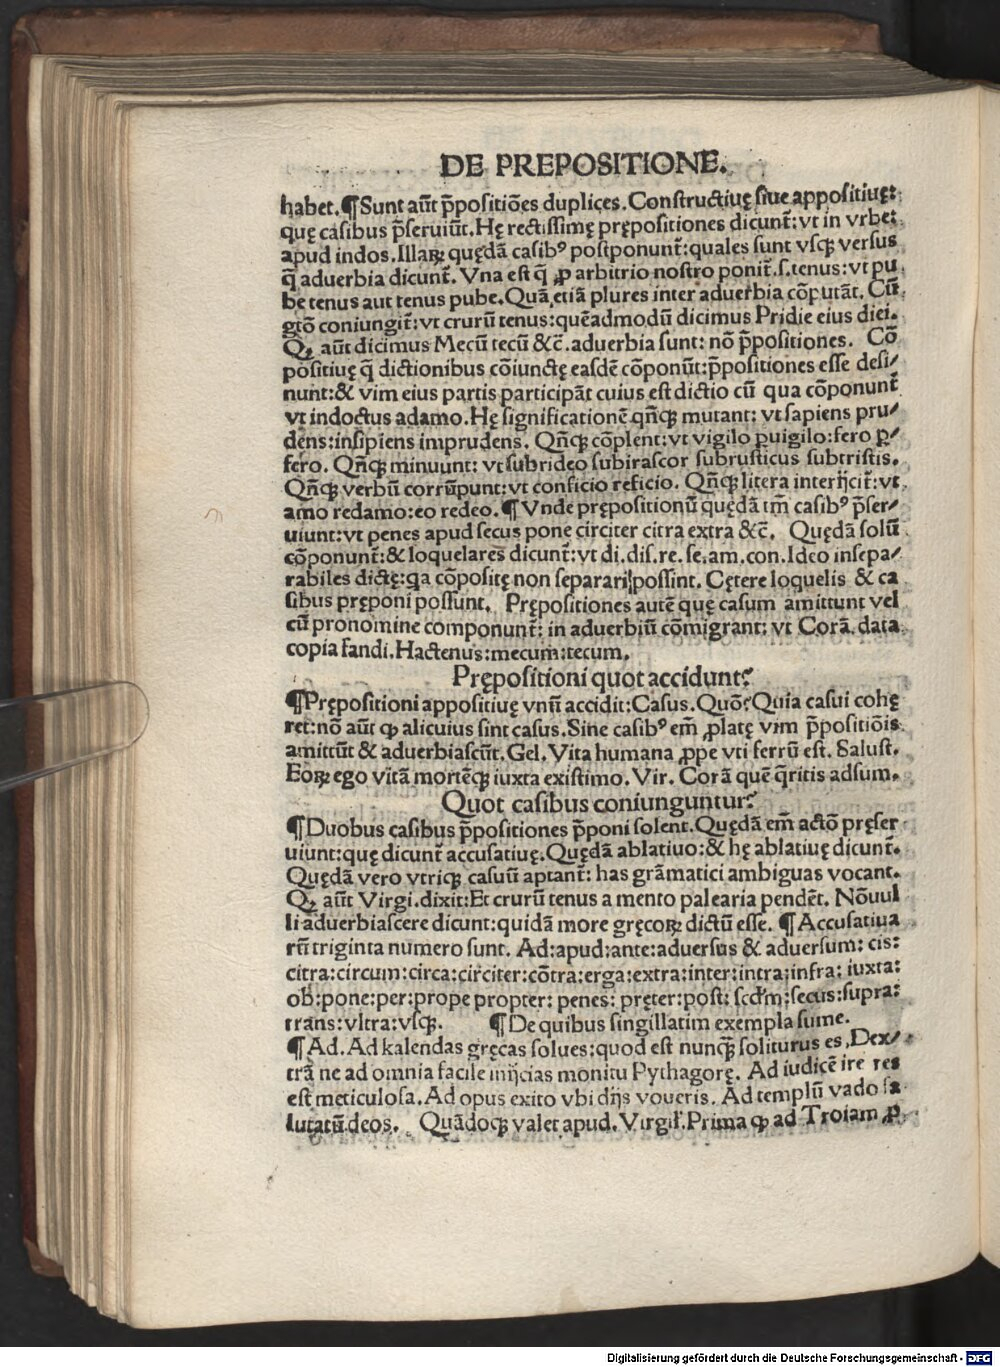 DE PREPOSITIONE.
habet.¶Sunt aūt p̄positiōes duplices.Constructiuę siue appositiuę:
quę casibus p̄seruiūt.Hę rectissimę prępositiones dicunt̄:vt in vrbe:
apud indos.Illaꝝ quędā casibꝰ postponunt̄:quales sunt vsqꝫ versus
q̄ aduerbia dicunt̄. Vna est q̄ ꝓ arbitrio nostro ponit̄.s.tenus:vt pu
be tenus aut tenus pube.Quā etiā plures inter aduerbia cōputāt. Cū
gtō coniungit̄:vt crurū tenus:quēadmodū dicimus Pridie eius diei.
Qꝫ aūt dicimus Mecū tecū &c̄.aduerbia sunt: nō p̄positiones. Cō
positiuę q̄ dictionibus cōiunctę easdē cōponūt:p̄positiones esse desi/
nunt:& vim eius partis participāt cuius est dictio cū qua cōponunt̄
vt indoctus adamo.Hę significationē qn̄cꝫ mutant: vt sapiens pru/
dens:insipiens imprudens. Qn̄cꝫ cōplent:vt vigilo ꝑuigilo:fero ꝑ/
fero. Qn̄cꝫ minuunt: vt subrideo subirascor subrusticus subtristis.
Qn̄cꝫ verbū corrūpunt:vt conficio reficio. Qn̄cꝫ litera interijcit̄:vt
amo redamo:eo redeo.¶Vnde prępositionū quędā tm̄ casibꝰ p̄ser/
uiunt:vt penes apud secus pone circiter citra extra &c̄. Quędā solū
cōponunt̄:& loquelares dicunt̄:vt di.dis.re.se.am.con.Ideo insepa/
rabiles dictę:qa cōpositę non separari possint. Cętere loquelis & ca
sibus pręponi possunt. Prępositiones autē quę casum amittunt vel
cū pronomine componunt̄: in aduerbiū cōmigrant: vt Corā. data
copia fandi.Hactenus:mecum:tecum.
Prępositioni quot accidunt?
¶Prępositioni appositiuę vnū accidit:Casus.Quō?Quia casui cohę
ret:nō aūt ꝙ alicuius sint casus.Sine casibꝰ em̄ ꝓlatę vim p̄positiōis
amittūt & aduerbiascūt.Gel.Vita humana ꝓpe vti ferrū est. Salust.
Eoꝝ ego vitā mortēqꝫ iuxta existimo. Vir. Corā quē q̄ritis adsum.
Quot casibus coniunguntur?
¶Duobus casibus p̄positiones p̄poni solent.Quędā em̄ actō pręser
uiunt:quę dicunt̄ accusatiuę.Quędā ablatiuo:& hę ablatiuę dicunt̄.
Quędā vero vtriqꝫ casuū aptant̄: has grāmatici ambiguas vocant.
Qꝫ aūt Virgi.dixit:Et crurū tenus a mento palearia pendēt. Nōuul
li aduerbiascere dicunt:quidā more gręcoꝝ dictū esse. ¶Accusatiua
rū triginta numero sunt. Ad:apud:ante:aduersus & aduersum: cis:
citra:circum:circa:circiter:cōtra:erga:extra:inter:intra:infra: iuxta:
ob:pone:per:prope propter: penes: pręter:post: scd̄m:secus:supra:
trans:vltra:vsqꝫ. ¶De quibus singillatim exempla sume.
¶Ad.Ad kalendas gręcas solues:quod est nunqꝫ̄ soliturus es.Dex/
trā ne ad omnia facile inijcias monitu Pythagorę. Ad iudicē ire res
est meticulosa.Ad opus exito vbi dijs voueris. Ad templū vado sa
lutatū deos. Quādoqꝫ valet apud.Virgil̄.Prima ꝙ ad Troiam ꝓ
Digitalisierung gefördert durch die Deutsche Forschungsgemeinschaft - DFG